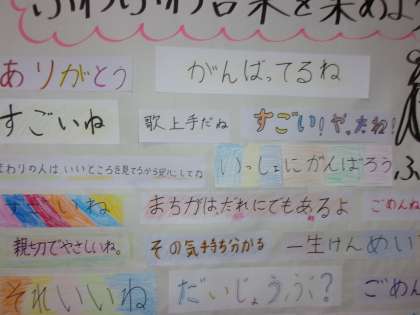 ふわふわ言葉を集めよう
ありがとう
がんばってるね
すごいね
歌上手だね
すごい!や、たね!
まわりの人はいいところを見てるから安心してね
いっしょにがんばろう
すごいね
まちがいはだれにでもあるよ
ごめんね
親切でやさしいね。
その気持ち分かる
一生けんめい
それいいね
だいじょうぶ?
ごめん